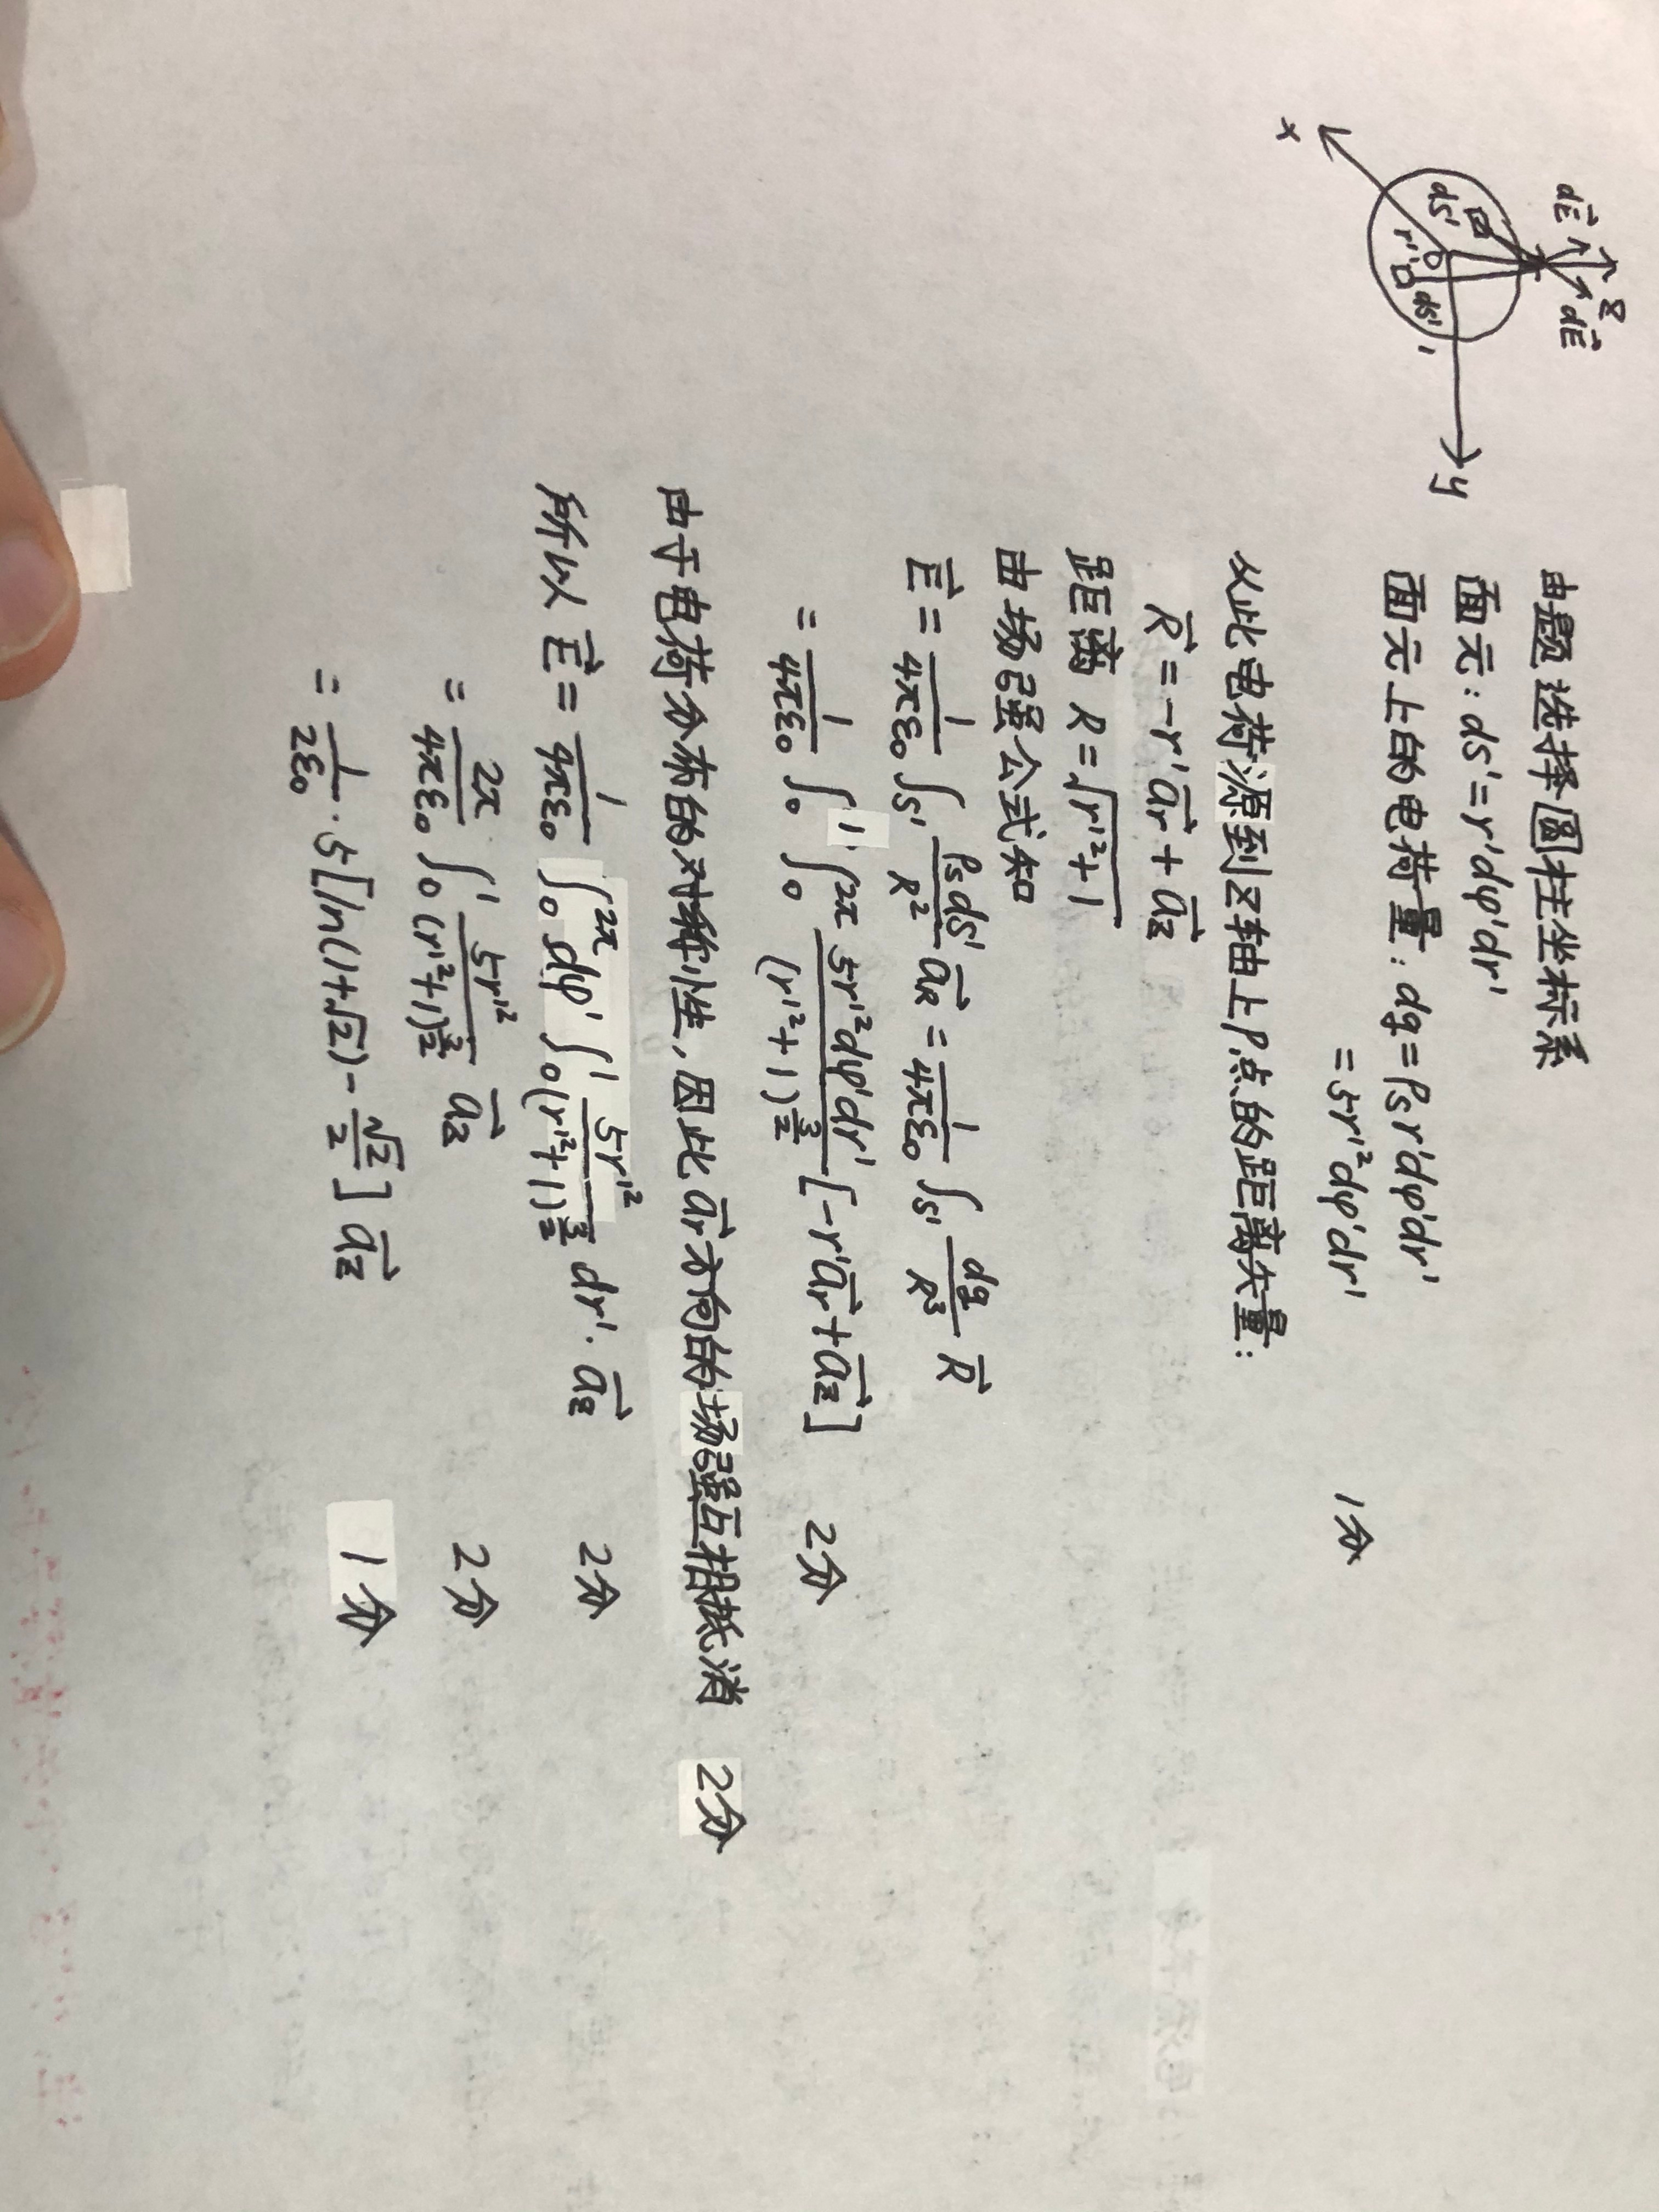 z
dE⃗ dE⃗
dS' r' O dS' 1
x y
由题选择圆柱坐标系
面元: ds'=r'dφ'dr'
面元上的电荷量: dq=ρs r'dφ'dr'
=5r'²dφ'dr' 1分
从此电荷源到z轴上P点的距离矢量:
R⃗=-r'a⃗r+a⃗z
距离 R=√(r'²+1)
由场强公式知
E⃗=1/(4πε₀) ∫s' ρsds'/R² a⃗R = 1/(4πε₀) ∫s' dq/R³ R⃗
=1/(4πε₀) ∫₀¹ ∫₀^2π 5r'²dφ'dr'/(r'²+1)^(3/2) [-r'a⃗r+a⃗z] 2分
由于电荷分布的对称性,因此a⃗r方向的场强互相抵消 2分
所以 E⃗=1/(4πε₀) ∫₀^2π dφ' ∫₀¹ 5r'²/(r'²+1)^(3/2) dr'·a⃗z 2分
=2π/(4πε₀) ∫₀¹ 5r'²/(r'²+1)^(3/2) a⃗z 2分
=1/(2ε₀)·5[ln(1+√2)-√2/2] a⃗z 1分